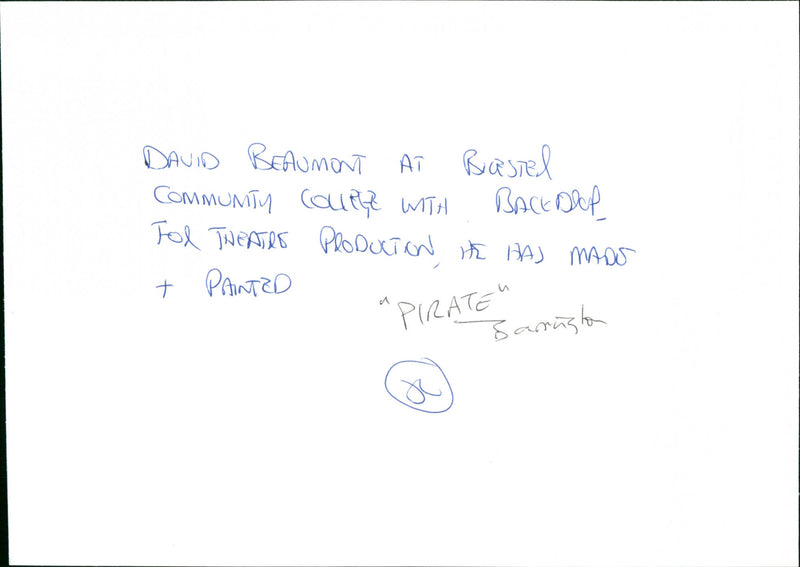 DAVID BEAUMONT AT BICESTER
COMMUNITY COLLEGE WITH BACKDROP
FOR THEATRE PRODUCTION, HE HAS MADE
+ PAINTED
"PIRATE"